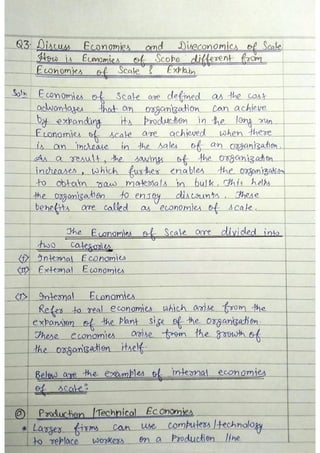 Q3 Discuss Economies and Diseconomies of Scale
How is Economies of Scope different from
Economies of Scale? Explain
Soln Economies of Scale are defined as the cost
advantages that an organization can achieve
by expanding its Production in the long run.
Economies of scale are achieved when there
is an increase in the sales of an organization.
As a result, the savings of the organization
increases, which further enables the organization
to obtain raw materials in bulk. This helps
the organisation to enjoy discounts. These
benefits are called as economies of scale.
The Economies of Scale are divided into
two categories
(I) Internal Economies
(II) External Economies
(I) Internal Economies
Refer to real economies which arise from the
expansion of the Plant size of the organization
These economies arise from the growth of
the organization itself
Below are the examples of internal economies
of scale:
Production / Technical Economies
• Larger firms can use computers / technology
to replace workers on a Production line